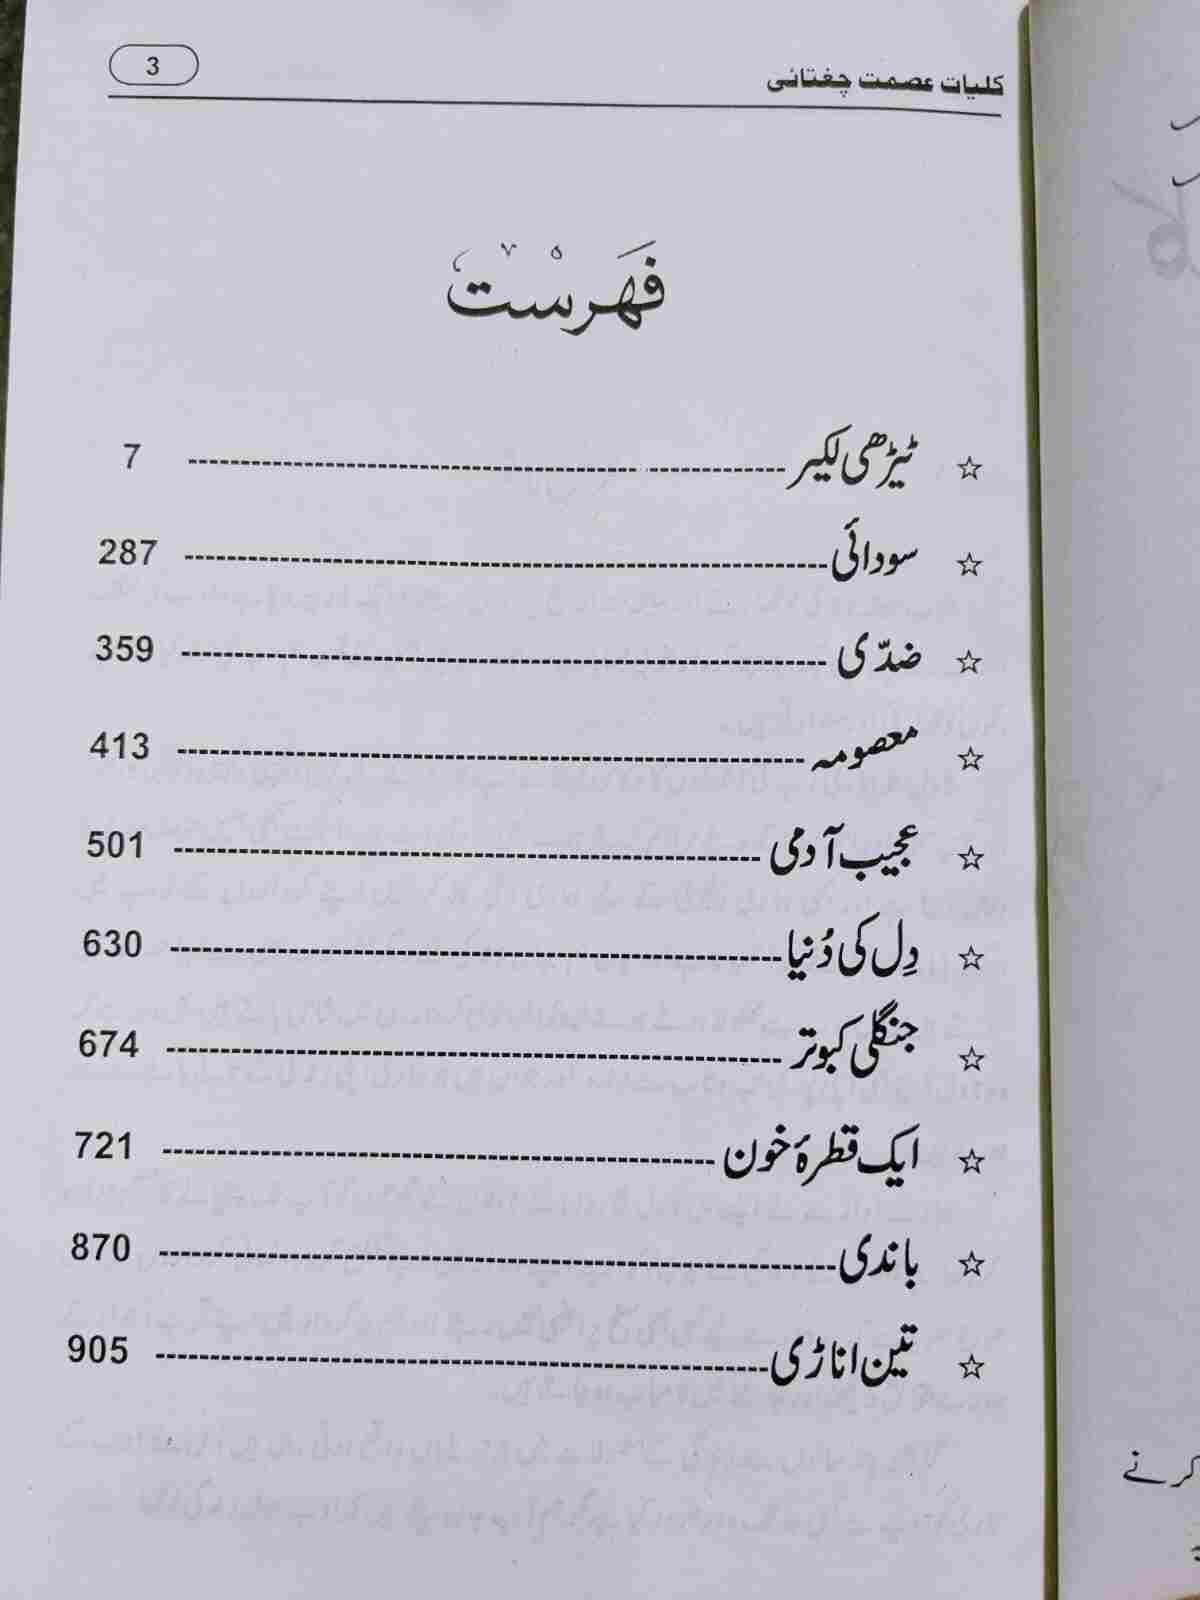 کلیات عصمت چغتائی 3
فہرست
☆ ٹیڑھی لکیر ------------------------ 7
☆ سودائی ------------------------ 287
☆ ضدّی ------------------------ 359
☆ معصومہ ------------------------ 413
☆ عجیب آدمی ------------------------ 501
☆ دِل کی دُنیا ------------------------ 630
☆ جنگلی کبوتر ------------------------ 674
☆ ایک قطرۂ خون ------------------------ 721
☆ باندی ------------------------ 870
☆ تین اناڑی ------------------------ 905
کرنے